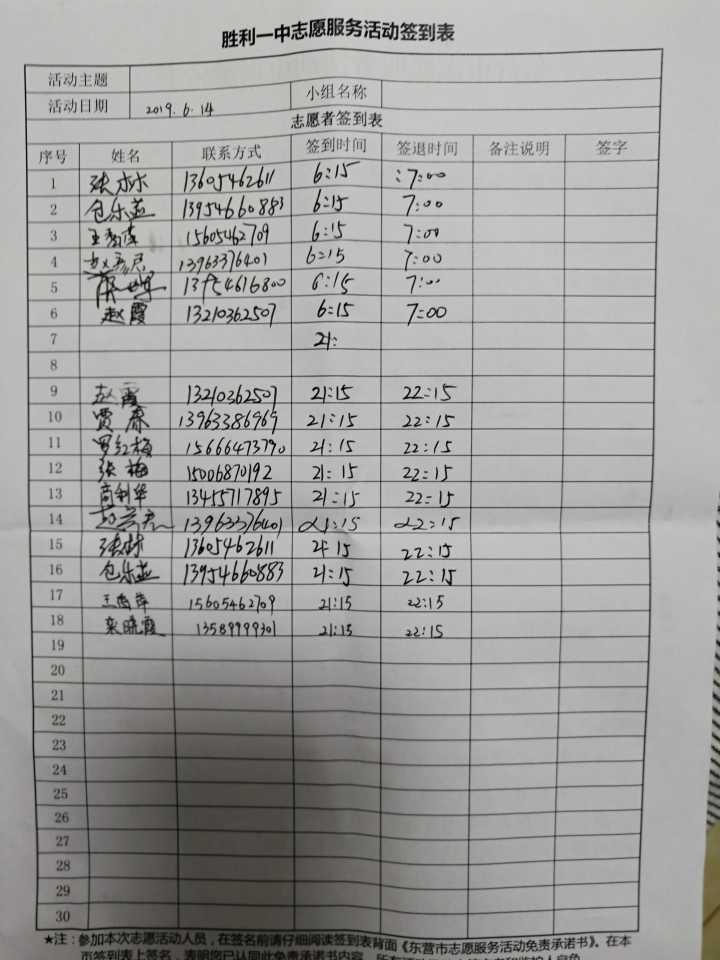 胜利一中志愿服务活动签到表
活动主题
活动日期 2019.6.14 小组名称
志愿者签到表
序号 姓名 联系方式 签到时间 签退时间 备注说明 签字
1 张林 13605462611 6:15 :7:00
2 仓乐益 13954660883 6:15 7:00
3 15605462709 6:15 7:00
4 13963376401 6:15 7:00
5 6:15 7:00
6 赵霞 13210362507 6:15 7:00
7 21:
8
9 赵霞 13210362507 21:15 22:15
10 贾春 13963386969 21:15 22:15
11 罗红梅 15666473790 21:15 22:15
12 张梅 15006870192 21:15 22:15
13 商利华 13455717895 21:15 22:15
14 13963376401 21:15 22:15
15 张林 13605462611 21 15 22:15
16 仓乐益 13954660883 21:15 22:15
17 15605462709 21:15 22:15
18 栾晓霞 13589999301 21:15 22:15
19
20
21
22
23
24
25
26
27
28
29
30
★注：参加本次志愿活动人员，在签名前请仔细阅读签到表背面《东营市志愿服务活动免责承诺书》。在本
页签到表上签名，表明您已认同此免责承诺书内容，